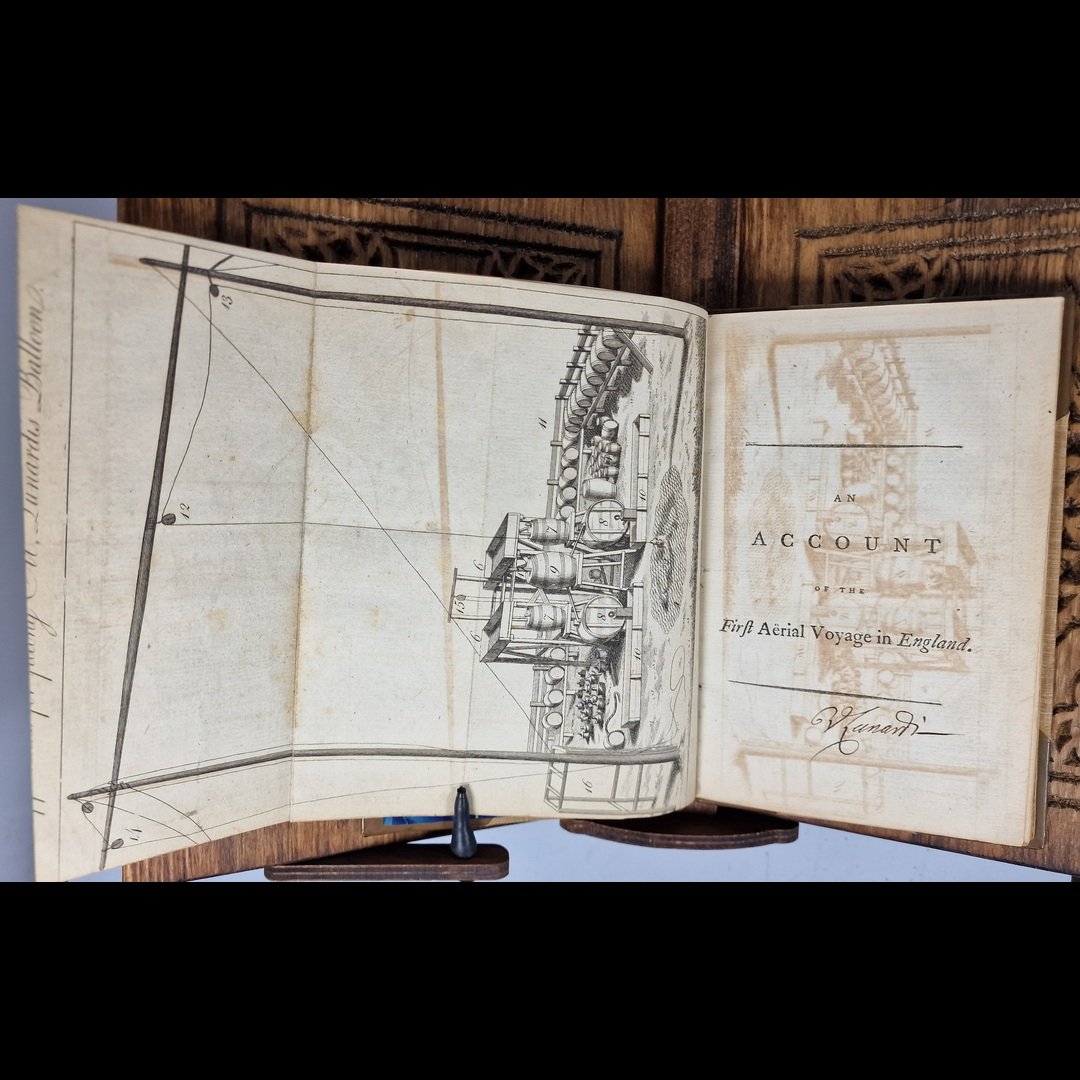 Mr. Lunardis Balloon.
13
12
11
14
15
9
9
7
9
7
8
8
10
10
16
AN
ACCOUNT
OF THE
Firſt Aërial Voyage in England.
VLunardi